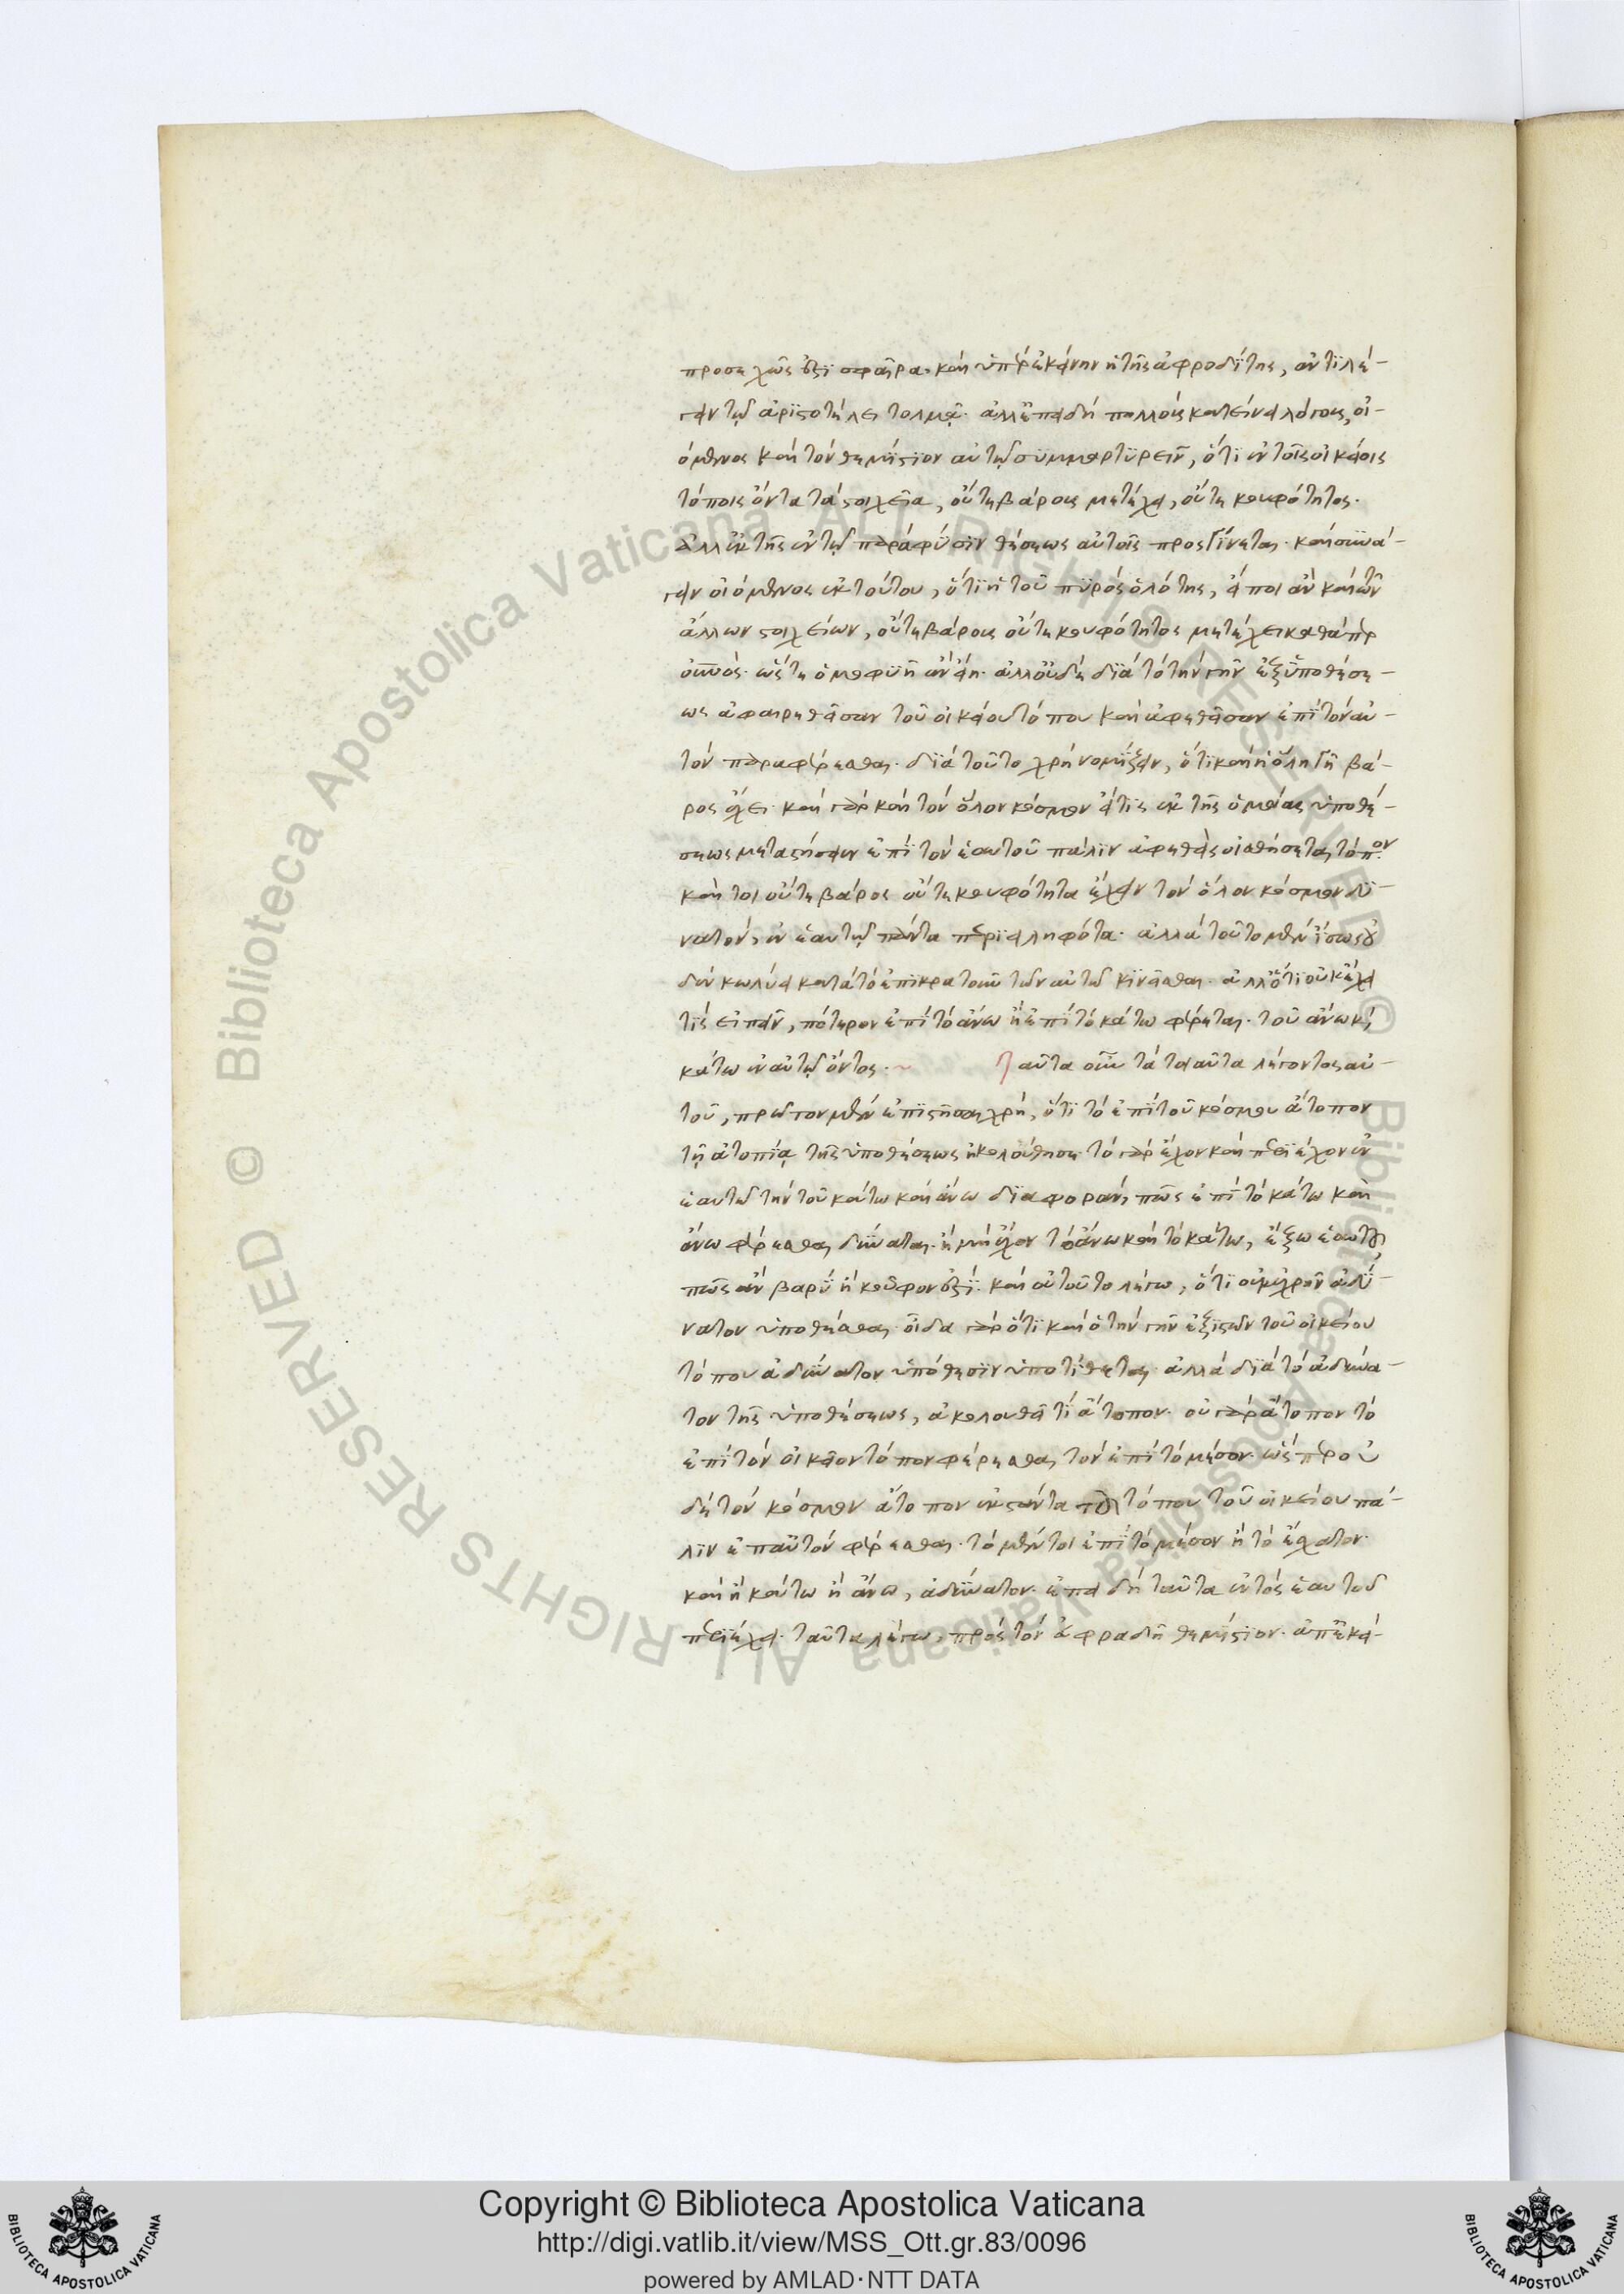 προσεχῶς ἐστὶ σφαῖρα· καὶ ὑπὲρ ἐκείνην ἡ τῆς ἀφροδίτης, ἀντιλέ-
γειν τῷ ἀριστοτέλει τολμᾷ· ἀλλ' ἐπειδὴ πολλοὺς κατέτεινε λόγους, οἰ-
όμενος καὶ τὸν θεμίστιον αὐτῷ συμμαρτυρεῖν, ὅτι ἐν τοῖς οἰκείοις
τόποις ὄντα τὰ στοιχεῖα, οὔτε βάρους μετέχει, οὔτε κουφότητος·
ἀλλ' ἐκ τῆς ἐν τῷ παρὰ φύσιν θέσεως αὐτοῖς προσγίνεται· καὶ συνά-
γειν οἰόμενος ἐκ τούτου, ὅτι ἡ τοῦ πυρὸς ὁλότης, εἴποι ἂν καὶ τῶν
ἄλλων στοιχείων, οὔτε βάρους οὔτε κουφότητος μετέχει καθάπερ
οὐρανός· ὥστε ὁμοφυῆ ἂν εἴη· ἀλλ' οὐδὲ διὰ τὸ τὴν γῆν ἐξ ὑποθέσε-
ως ἀφαιρεθεῖσαν τοῦ οἰκείου τόπου καὶ ἀφεθεῖσαν ἐπὶ τὸν αὐ-
τὸν παραφέρεσθαι· διὰ τοῦτο χρὴ νομίζειν, ὅτι καὶ ἡ ὅλη γῆ βά-
ρος ἔχει· καὶ γὰρ καὶ τὸν ὅλον κόσμον εἴ τις ἐκ τῆς ὁμοίας ὑποθέ-
σεως μεταστήσειεν ἐπὶ τὸν ἑαυτοῦ πάλιν ἀφεθεὶς οἰσθήσεται τόπον
καί τοι οὔτε βάρος οὔτε κουφότητα ἔχειν τὸν ὅλον κόσμον δυ-
νατόν, ἐν ἑαυτῷ πάντα περιειληφότα· ἀλλὰ τοῦτο μὲν ἴσως οὐ
δὲν κωλύει κατὰ τὸ ἐπικρατοῦν τῶν ἐν αὐτῷ κινεῖσθαι· ἀλλ' ὅτι οὐκ ἔχει
τις εἰπεῖν, πότερον ἐπὶ τὸ ἄνω ἢ ἐπὶ τὸ κάτω φέρεται· τοῦ ἄνω καὶ
κάτω ἐν αὐτῷ ὄντος· ~ Ταῦτα οὖν τὰ τοιαῦτα λέγοντος αὐ-
τοῦ, πρῶτον μὲν ἐπιστῆσαι χρή, ὅτι τὸ ἐπὶ τοῦ κόσμου ἄτοπον
τῇ ἀτοπίᾳ τῆς ὑποθέσεως ἠκολούθησε· τὸ γὰρ ἔχον καὶ περιέχον ἐν
ἑαυτῷ τὴν τοῦ κάτω καὶ ἄνω διαφοράν, πῶς ἐπὶ τὸ κάτω καὶ
ἄνω φέρεσθαι δύναται· ἢ μὴ ἔχον τὸ ἄνω καὶ τὸ κάτω, ἔξω ἑαυτοῦ
πῶς ἂν βαρὺ ἢ κοῦφον ἐστί· καὶ οὐ τοῦτο λέγω, ὅτι οὐκ ἐχρῆν ἀδύ-
νατον ὑποθέσθαι· οἶδα γὰρ ὅτι καὶ ὁ τὴν γῆν ἐξιστῶν τοῦ οἰκείου
τόπου ἀδύνατον ὑπόθεσιν ὑποτίθεται· ἀλλὰ διὰ τὸ ἀδύνα-
τον τῆς ὑποθέσεως, ἀκολουθεῖ τι ἄτοπον· οὐ γὰρ ἄτοπον τὸ
ἐπὶ τὸν οἰκεῖον τόπον φέρεσθαι τὸν ἐπὶ τὸ μέσον· ὥσπερ οὐ
δὲ τὸν κόσμον ἄτοπον ἐκστάντα τοῦ τόπου τοῦ οἰκείου πά-
λιν ἐπ' αὐτὸν φέρεσθαι· τὸ μέντοι ἐπὶ τὸ μέσον ἢ τὸ ἔσχατον·
καὶ ἢ κάτω ἢ ἄνω, ἀδύνατον· ἐπειδὴ ταῦτα ἐντὸς ἑαυτοῦ
περιέχει· ταῦτα λέγω, πρὸς τὸν εὐφραδῆ θεμίστιον· ἐπεὶ ἐκεῖ-
Copyright © Biblioteca Apostolica Vaticana
http://digi.vatlib.it/view/MSS_Ott.gr.83/0096
powered by AMLAD·NTT DATA
BIBLIOTECA APOSTOLICA VATICANA
BIBLIOTECA APOSTOLICA VATICANA
© Biblioteca Apostolica Vaticana ALL RIGHTS RESERVED
© Biblioteca Apostolica Vaticana ALL RIGHTS RESERVED